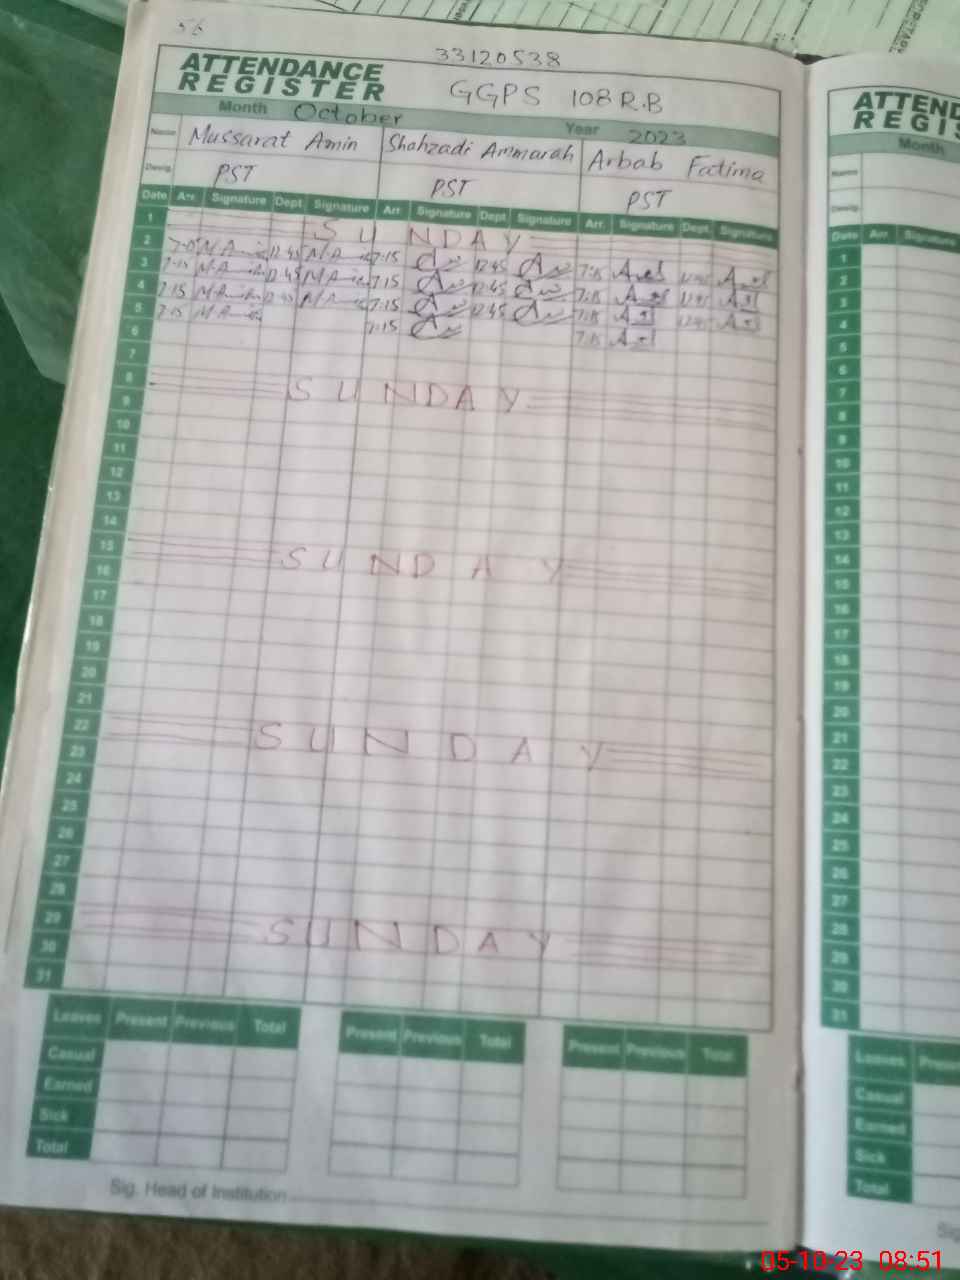 56
33120538
ATTENDANCE
REGISTER
GGPS 108 R.B
Month October Year 2023
Name Mussarat Amin Shahzadi Ammarah Arbab Fatima
Desig. PST PST PST
Date Arr. Signature Dept. Signature Arr. Signature Dept. Signature Arr. Signature Dept. Signature
1 SUNDAY
2 M. Amin 12:45 M. Amin 7:15 12:45 7:15 12:45
3 7:15 M. Amin 12:45 M. Amin 7:15 12:45 7:15 12:45
4 7:15 M. Amin 12:45 M. Amin 7:15 12:45 7:15 12:45
5 7:15 M. Amin 7:15 7:15
6
7
8 SUNDAY
9
10
11
12
13
14
15 SUNDAY
16
17
18
19
20
21
22 SUNDAY
23
24
25
26
27
28
29 SUNDAY
30
31
Leaves Present Previous Total Present Previous Total Present Previous Total
Casual
Earned
Sick
Total
Sig. Head of Institution
ATTEND
REGIS
Month
Name
Desig.
Date Arr. Signature
1
2
3
4
5
6
7
8
9
10
11
12
13
14
15
16
17
18
19
20
21
22
23
24
25
26
27
28
29
30
31
Leaves Present
Casual
Earned
Sick
Total
Sig
05-10-23 08:51